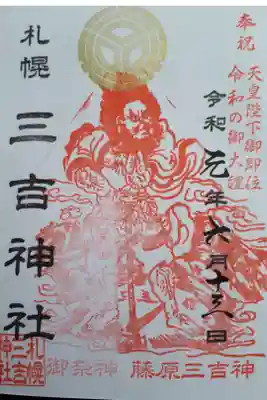 奉祝
天皇陛下御即位
令和の御大礼
令和元年六月
札幌
三吉神社
御祭神 藤原三吉神
札幌
三吉
神社